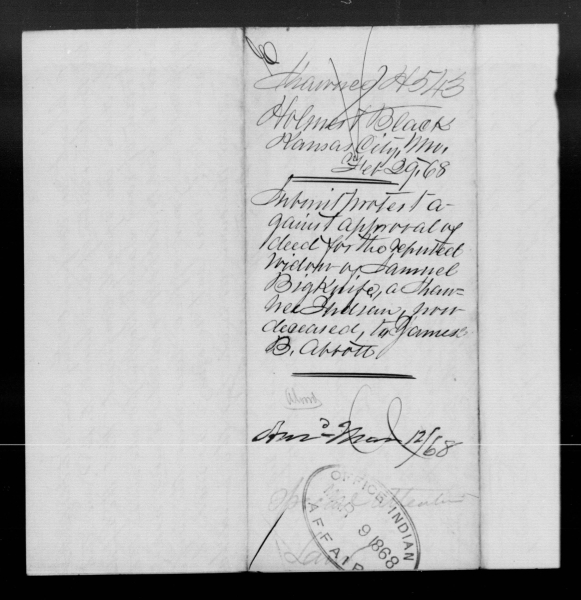 Shawnee H543
Holmes & Black
Kansas City, Mo.
Feb 29. 68
Submit protest a-
gainst approval of
deed for the reputed
widow of Samuel
Bigknife, a Shaw-
nee Indian, now
deceased, to James
B. Abbott.
Ansd Mar 12/68
OFFICE INDIAN
MAR 9 1868
AFFAIRS